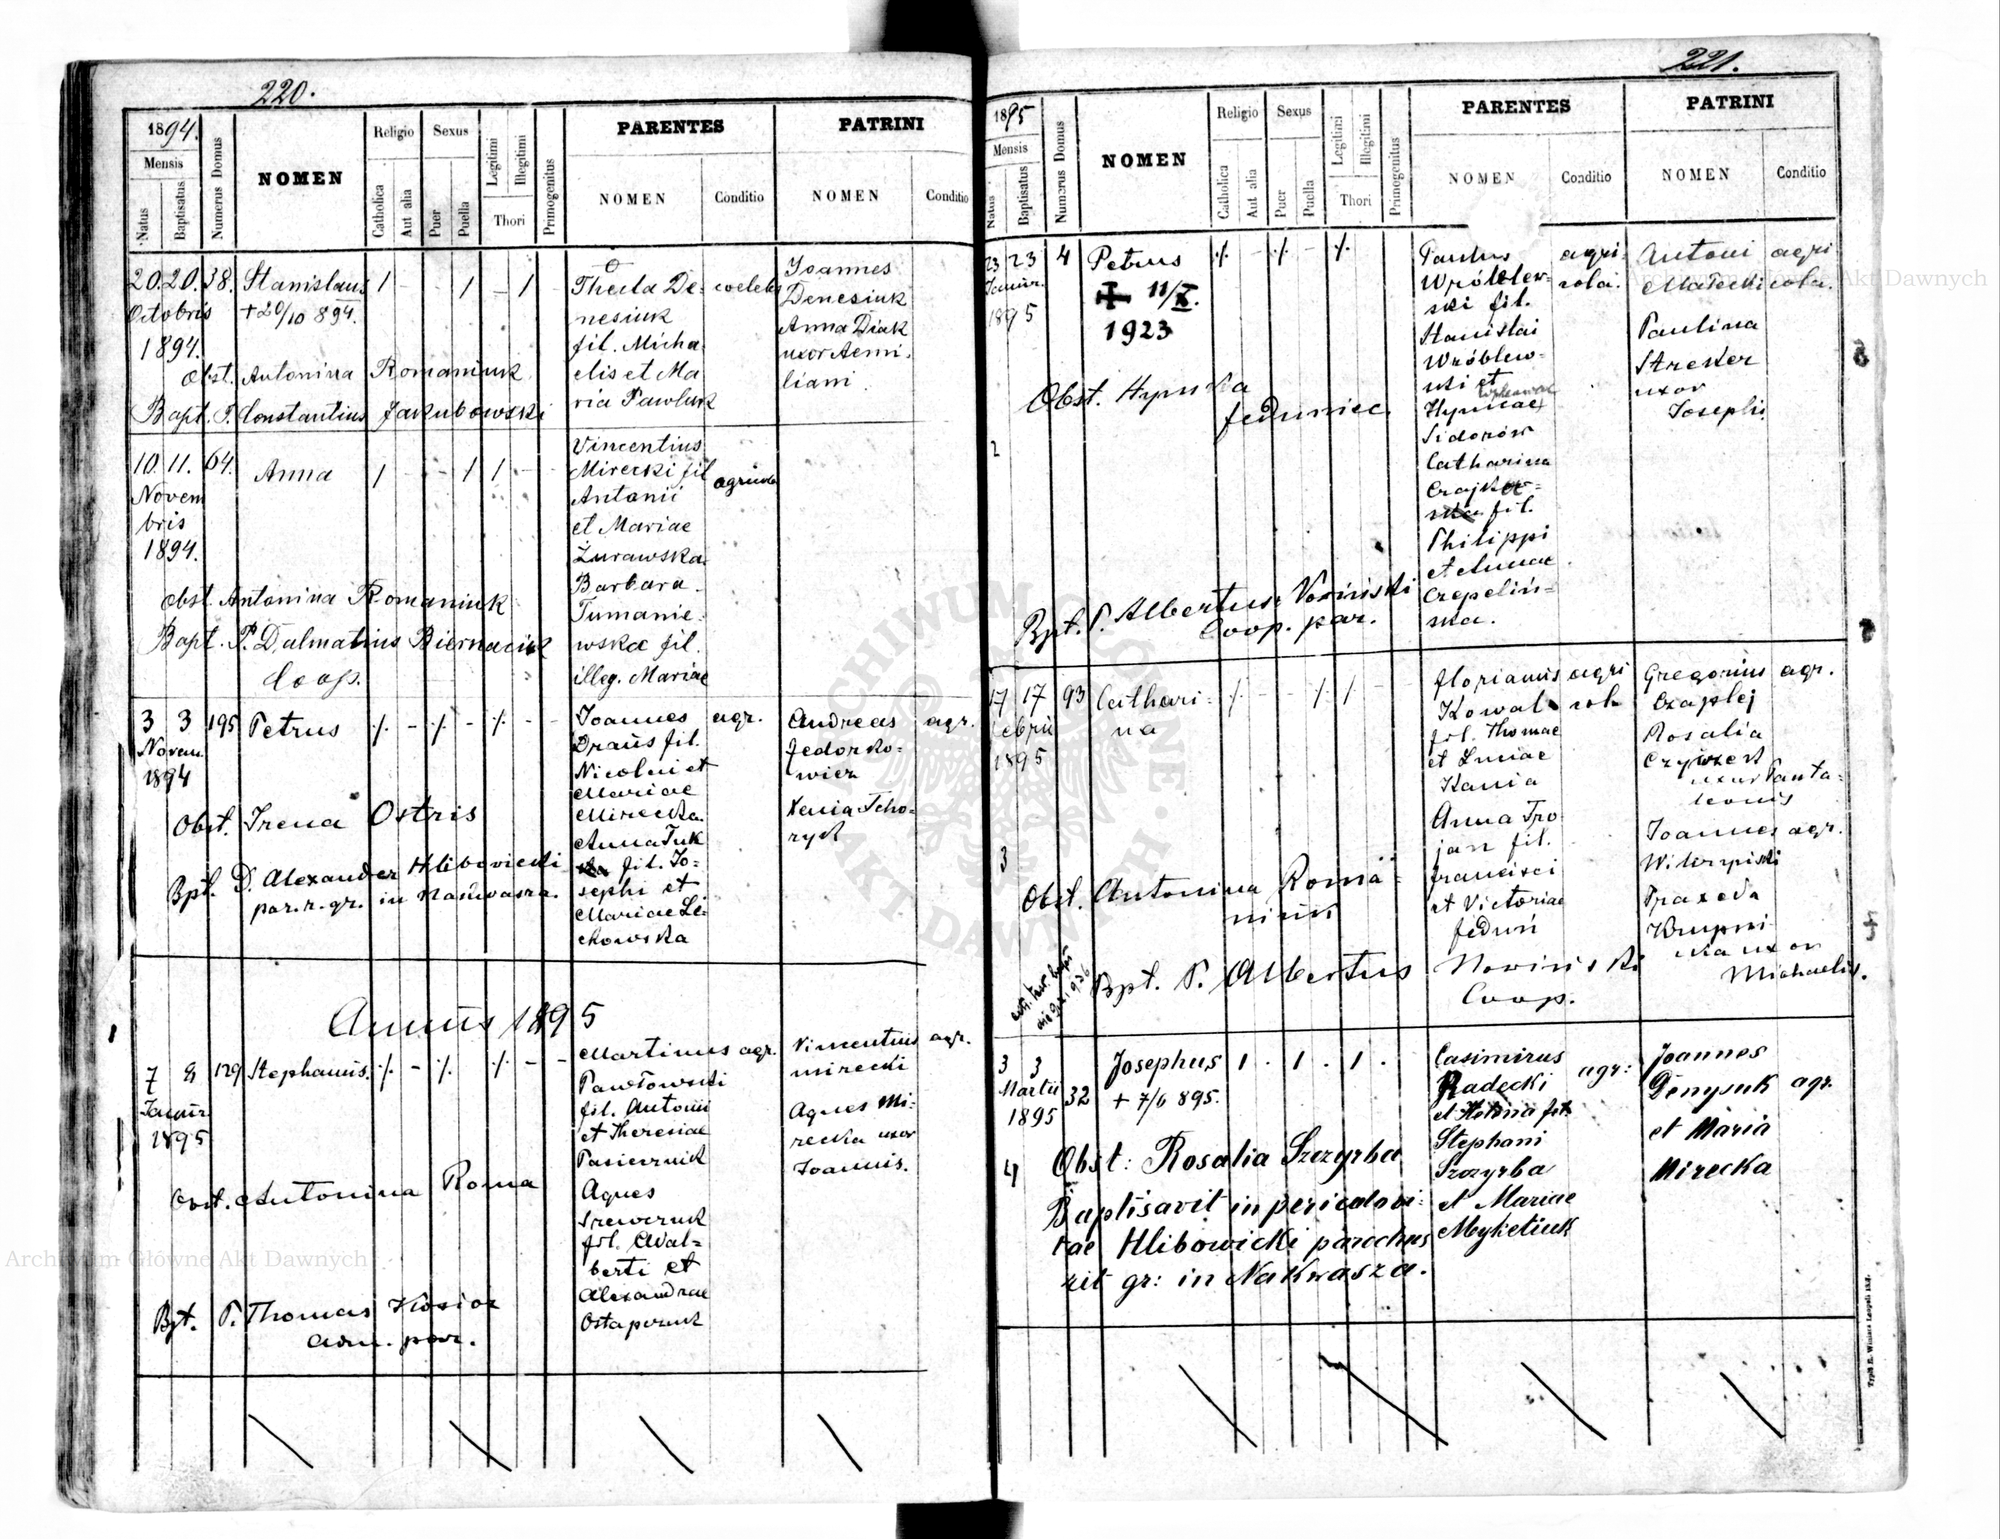 220.
1894.
Mensis
Natus
Baptisatus
Numerus Domus
NOMEN
Religio
Catholica
Aut alia
Sexus
Puer
Puella
Legitimi
Illegitimi
Thori
Primogenitus
PARENTES
NOMEN
Conditio
PATRINI
NOMEN
Conditio
20. 20. 38. Stanislaus 1 - 1 - 1 -
Octobris + 20/10 894.
1894.
Obst. Antonina Romaniuk
Bapt. P. Constantius Jakubowski
Thecla De-
nesiuk
fil. Micha
elis et Ma
ria Pawluk
coelebs
Joannes
Denesiuk
Anna Diak
uxor Aemi-
liani.
10. 11. 64. Anna 1 - - 1 1 - -
Novem
bris
1894.
Obst. Antonina Romaniuk
Bapt. P. Dalmatius Biernaciuk
Coop.
Vincentius
Mirecki fil
Antonii
et Mariae
Żurawska.
Barbara
Tumanie-
wska fil.
illeg. Mariae
agricola
3 3 195 Petrus
Novem.
1894
Obst. Irena Ostris
Bpt. D. Alexander Hlibowiecki
par. r. gr. in Nakwasza.
Joannes
Draus fil.
Nicolai et
Mariae
Mirecka.
Anna Tuk
fil. Jo-
sephi et
Mariae Le-
chowska
agr.
Andreas
Fedorko-
wicz
Xenia Tcho-
ryk
agr.
Annus 1895
7 8 129 Stephanus.
Januar
1895
Obst. Antonina Roma
Bpt. P. Thomas Kosior
adm. par.
Martinus agr.
Pawłowski
fil. Antonii
et Theresiae
Pasiecznik
Agnes
Szewczuk
fil. Adal-
berti et
Alexandrae
Ostapczuk
Vincentius agr.
Mirecki
Agnes Mi-
recka uxor
Joannis.
221.
1895
Mensis
Natus
Baptisatus
Numerus Domus
NOMEN
Religio
Catholica
Aut alia
Sexus
Puer
Puella
Legitimi
Illegitimi
Thori
Primogenitus
PARENTES
NOMEN
Conditio
PATRINI
NOMEN
Conditio
23 23 4 Petrus
Januar.
1895
11/X.
1923
Obst. Hyńka
Feduniec.
2
Bpt. P. Albertus Noviński
Coop. par.
Paulus
Wróblew-
ski fil.
Stanislai
Wróblew-
ski et
Hyncae
Sidorów
Catharina
Czajkow-
ska fil.
Philippi
et Annae
Czepeliń-
ska.
agri-
cola.
Antoni
Małecki
Paulina
Strecker
uxor
Josephi
agri
cola.
17 17 93 Cathari-
na
Febru
1895
3
Obst. Antonina Roma-
niuk
Bpt. P. Albertus Noviński
Coop.
Florianus
Kowal
fil. Thomae
et Luciae
Kania
Anna Tro
jan fil.
Francisci
et Victoriae
Feduń
agri
cola
Gregorius agr.
Czaplej
Rosalia
uxor Panta-
leonis
Joannes agr.
Praxeda
Krupni
cka uxor
Michaelis.
3 3 32 Josephus 1 . 1 . 1 .
Martii + 7/6 895.
1895
4
Obst: Rosalia Szczyrba
Baptisavit in periculo vi-
tae Hlibowicki parochus
rit gr: in Nakwasza.
Casimirus
Radecki
et Helena fil.
Stephani
Szczyrba
et Mariae
Mykietiuk
agr:
Joannes
Denysuk
et Maria
Mirecka
agr.
Archiwum Główne Akt Dawnych
ARCHIWUM GŁÓWNE AKT DAWNYCH
Archiwum Główne Akt Dawnych